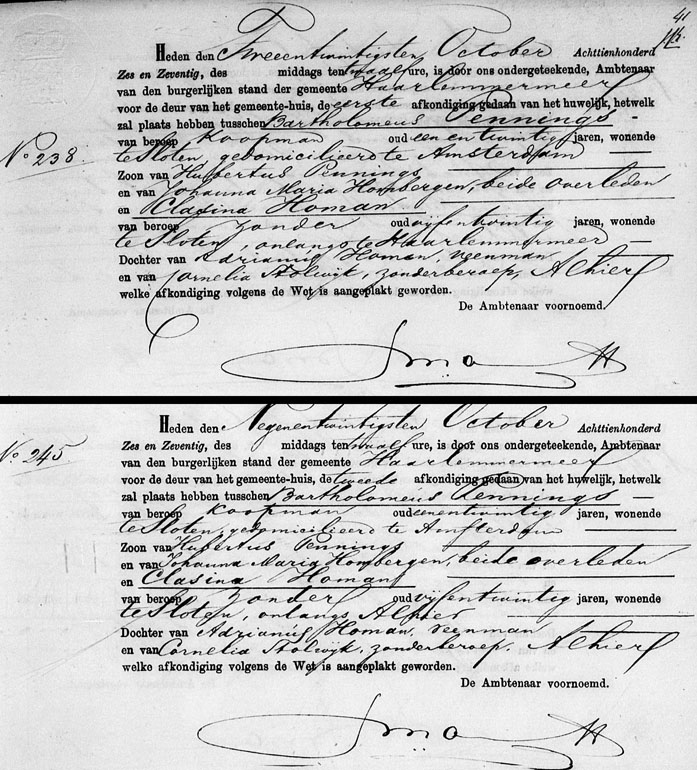 41
Heden den Tweeentwintigsten October Achttienhonderd
Zes en Zeventig, des middags ten twaalf ure, is door ons ondergeteekende, Ambtenaar
van den burgerlijken stand der gemeente Haarlemmermeer
voor de deur van het gemeente-huis, de eerste afkondiging gedaan van het huwelijk, hetwelk
zal plaats hebben tusschen Bartholomeus Pennings
van beroep Koopman oud eenentwintig jaren, wonende
No 238. te Sloten gedomicilieerd te Amsterdam
Zoon van Hubertus Pennings
en van Johanna Maria Hombergen, beide overleden
en Clasina Homan
van beroep zonder oud vijfentwintig jaren, wonende
te Sloten, onlangs te Haarlemmermeer
Dochter van Adrianus Homan, veenman
en van Cornelia Stolwijk, zonder beroep, Alhier
welke afkondiging volgens de Wet is aangeplakt geworden.
De Ambtenaar voornoemd.
Heden den Negenentwintigsten October Achttienhonderd
No 245 Zes en Zeventig, des middags ten twaalf ure, is door ons ondergeteekende, Ambtenaar
van den burgerlijken stand der gemeente Haarlemmermeer
voor de deur van het gemeente-huis, de tweede afkondiging gedaan van het huwelijk, hetwelk
zal plaats hebben tusschen Bartholomeus Pennings
van beroep Koopman oud eenentwintig jaren, wonende
te Sloten, gedomicilieerd te Amsterdam
Zoon van Hubertus Pennings
en van Johanna Maria Hombergen, beide overleden
en Clasina Homan
van beroep zonder oud vijfentwintig jaren, wonende
te Sloten, onlangs Alhier
Dochter van Adrianus Homan, veenman
en van Cornelia Stolwijk, zonder beroep, Alhier
welke afkondiging volgens de Wet is aangeplakt geworden.
De Ambtenaar voornoemd.